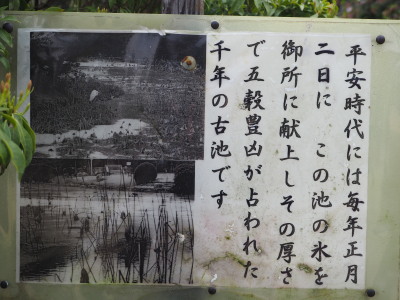 平安時代には毎年正月
二日に この池の氷を
御所に献上しその厚さ
で五穀豊凶が占われた
千年の古池です